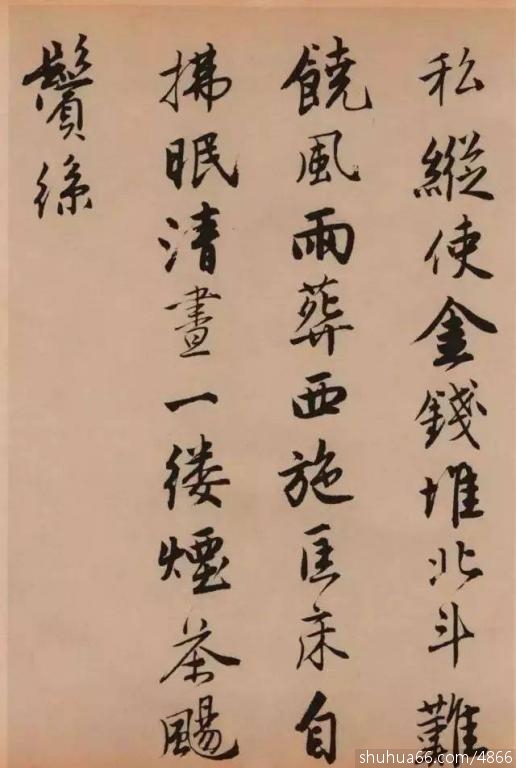 私縱使金錢堆北斗難
饒風雨葬西施匡床自
拂眠清晝一縷煙茶颺
鬢絲
shuhua66.com/4866